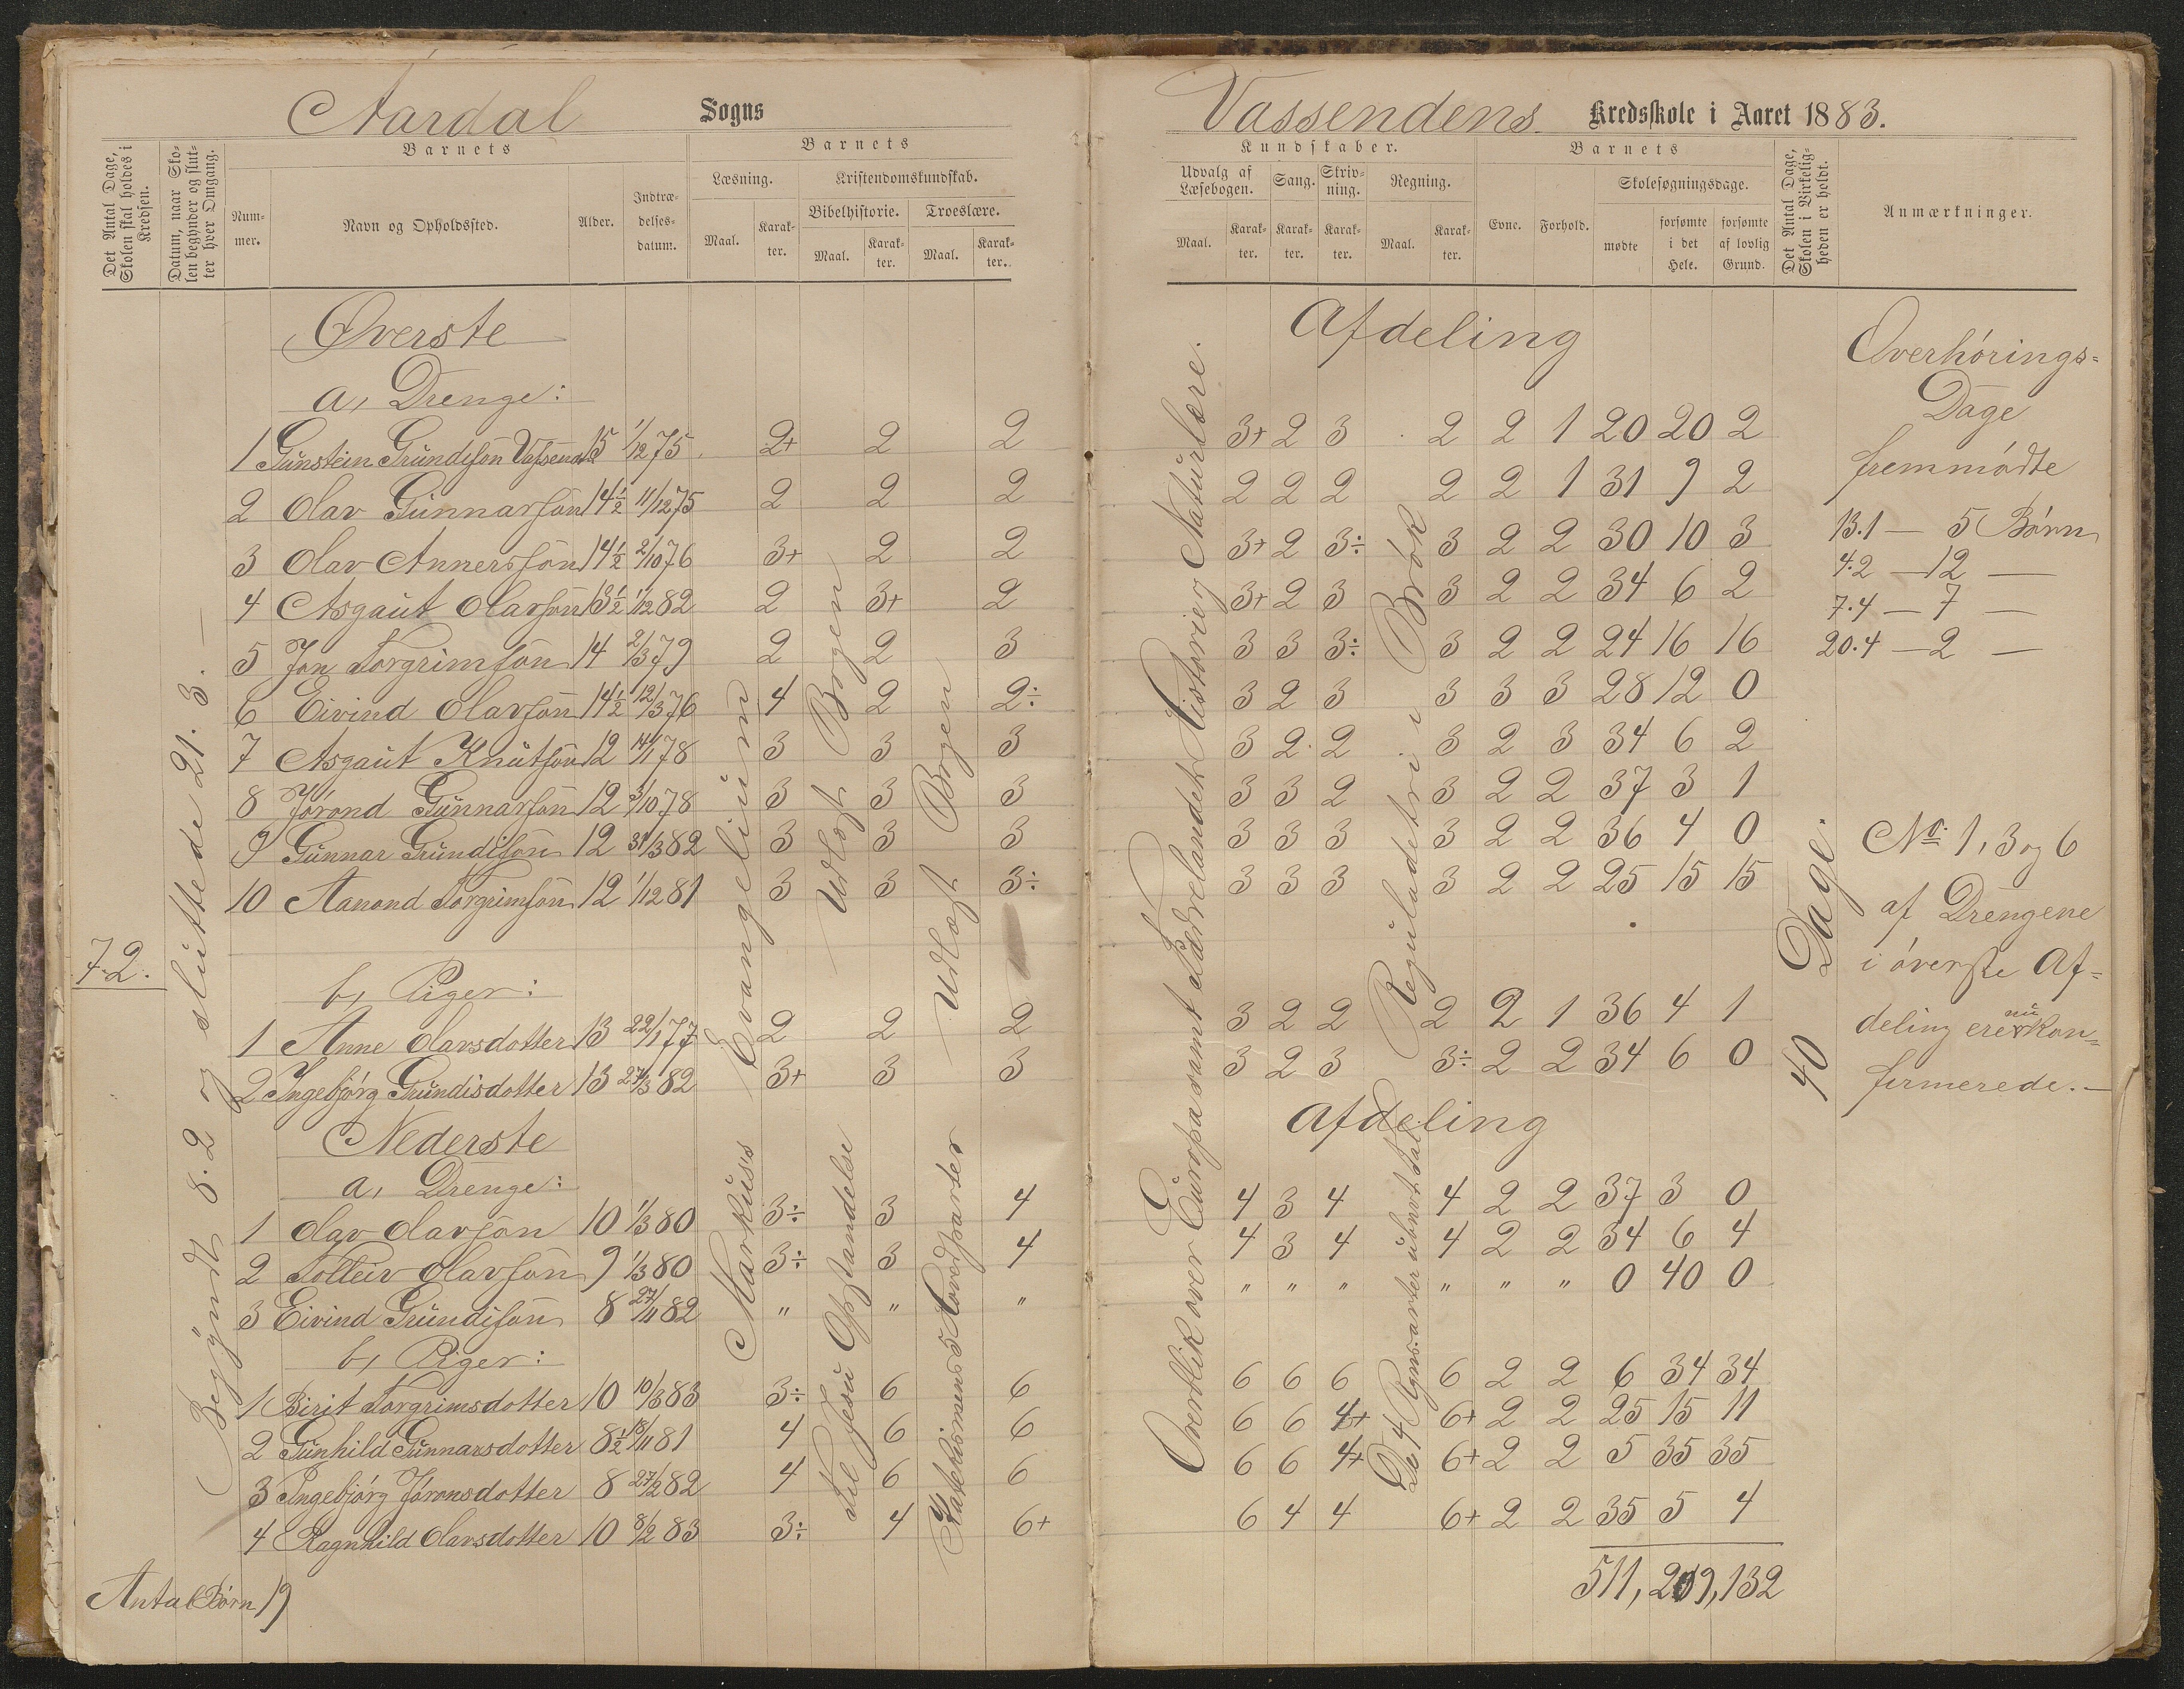 Aardal Sogns
Det Antal Dage, Skolen skal holdes i Kredsen.
Datum, naar Skolen begynder og slutter hver Omgang.
Barnets
Nummer.
Navn og Opholdssted.
Alder.
Indtrædelsesdatum.
Barnets
Læsning.
Maal.
Karakter.
Kristendomskundskab.
Bibelhistorie.
Maal.
Karakter.
Troeslære.
Maal.
Karakter.
72.
Begyndt 8.2 og sluttede 21.3.—
Øverste
a, Drenge:
1 Gunstein Grundesøn Vassend 15 1/12 75 2+ 2 2
2 Olav Gunnarsøn 14½ 11/12 75 2 2 2
3 Olav Annerssøn 14½ 2/10 76 3+ 2 2
4 Asgaut Olavsøn 13½ 1/12 82 2 3+ 2
5 Jon Torgrimsøn 14 2/3 79 2 2 3
6 Eivind Olavsøn 14½ 12/3 76 4 2 2÷
7 Asgaut Knutsøn 12 14/1 78 3 3 3
8 Jørond Gunnarsøn 12 3/10 78 3 3 3
9 Gunnar Grundesøn 12 31/3 82 3 3 3
10 Aanond Torgrimsøn 12 1/12 81 3 3 3÷
b, Piger:
1 Anne Olavsdotter 13 22/1 77 2 2 2
2 Ingebjørg Grundisdotter 13 27/3 82 3+ 3 3
Nederste
a, Drenge:
1 Olav Olavsøn 10 1/3 80 3÷ 3 4
2 Tolleiv Olavsøn 9 1/3 80 3÷ 3 4
3 Eivind Grundisøn 8 27/11 82 " " "
b, Piger:
1 Birit Torgrimsdotter 10 10/3 83 3÷ 6 6
2 Gunhild Gunnarsdotter 8½ 18/11 81 4 6 6
3 Ingebjørg Jøronsdotter 8 27/2 82 4 6 6
4 Ragnhild Olavsdotter 10 8/2 83 3÷ 4 6+
Markus's Evangelium
Til Jesu Opstandelse
Udlæst Bogen
Katekismens Hovedparter
Udlæst Bogen
Antal Børn 19
Vassendens Kredsskole i Aaret 1883.
Kundskaber.
Udvalg af Læsebogen.
Maal.
Karakter.
Sang.
Karakter.
Skrivning.
Karakter.
Regning.
Maal.
Karakter.
Barnets
Evne.
Forhold.
Skolesøgningsdage.
mødte
forsømte i det Hele.
forsømte af lovlig Grund.
Det Antal Dage, Skolen i Virkeligheden er holdt.
Anmærkninger.
Afdeling
3+ 2 3 2 2 1 20 20 2
2 2 2 2 2 1 31 9 2
3+ 2 3÷ 3 2 2 30 10 3
3+ 2 3 3 2 2 34 6 2
3 3 3÷ 3 2 2 24 16 16
3 2 3 3 3 3 28 12 0
3 2 2 3 2 3 34 6 2
3 3 2 3 2 2 37 3 1
3 3 3 3 2 2 36 4 0
3 3 3 3 2 2 25 15 15
3 2 2 2 2 1 36 4 1
3 2 3 3÷ 2 2 34 6 0
Afdeling
4 3 4 4 2 2 37 3 0
4 3 4 4 2 2 34 6 4
" " " " " " 0 40 0
6 6 6 6 2 2 6 34 34
6 6 4+ 6+ 2 2 25 15 11
6 6 4+ 6+ 2 2 5 35 35
6 4 4 6+ 2 2 35 5 4
511, 209, 132
Overblik over Europa samt Fædrelandets Historie og Naturlære.
Reguladetri i Brøk
De 4 Regnsarter i ubnevt Tal.
40 Dage.
Overhørings=
Dage
fremmødte
13.1 — 5 Børn
4.2 — 12 —
7.4 — 7 —
20.4 — 2 —
No. 1, 3 og 6
af Drengene
i øverste Af=
deling ere nu kon=
firmerede.—